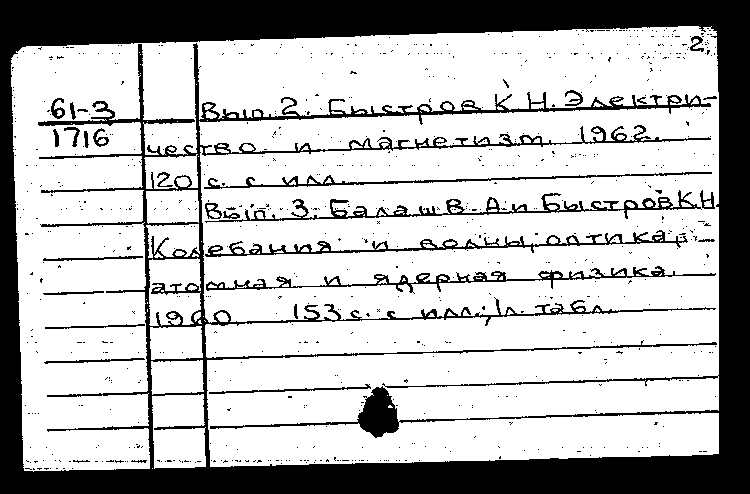 2.
61-3 Вып. 2. Быстров К.Н. Электри-
1716 чество и магнетизм. 1962.
120 с. с илл.
Вып. 3. Балаш В.А. и Быстров К.Н.
Колебания и волны, оптика,
атомная и ядерная физика.
1960 153 с. с илл.; 1 л. табл.